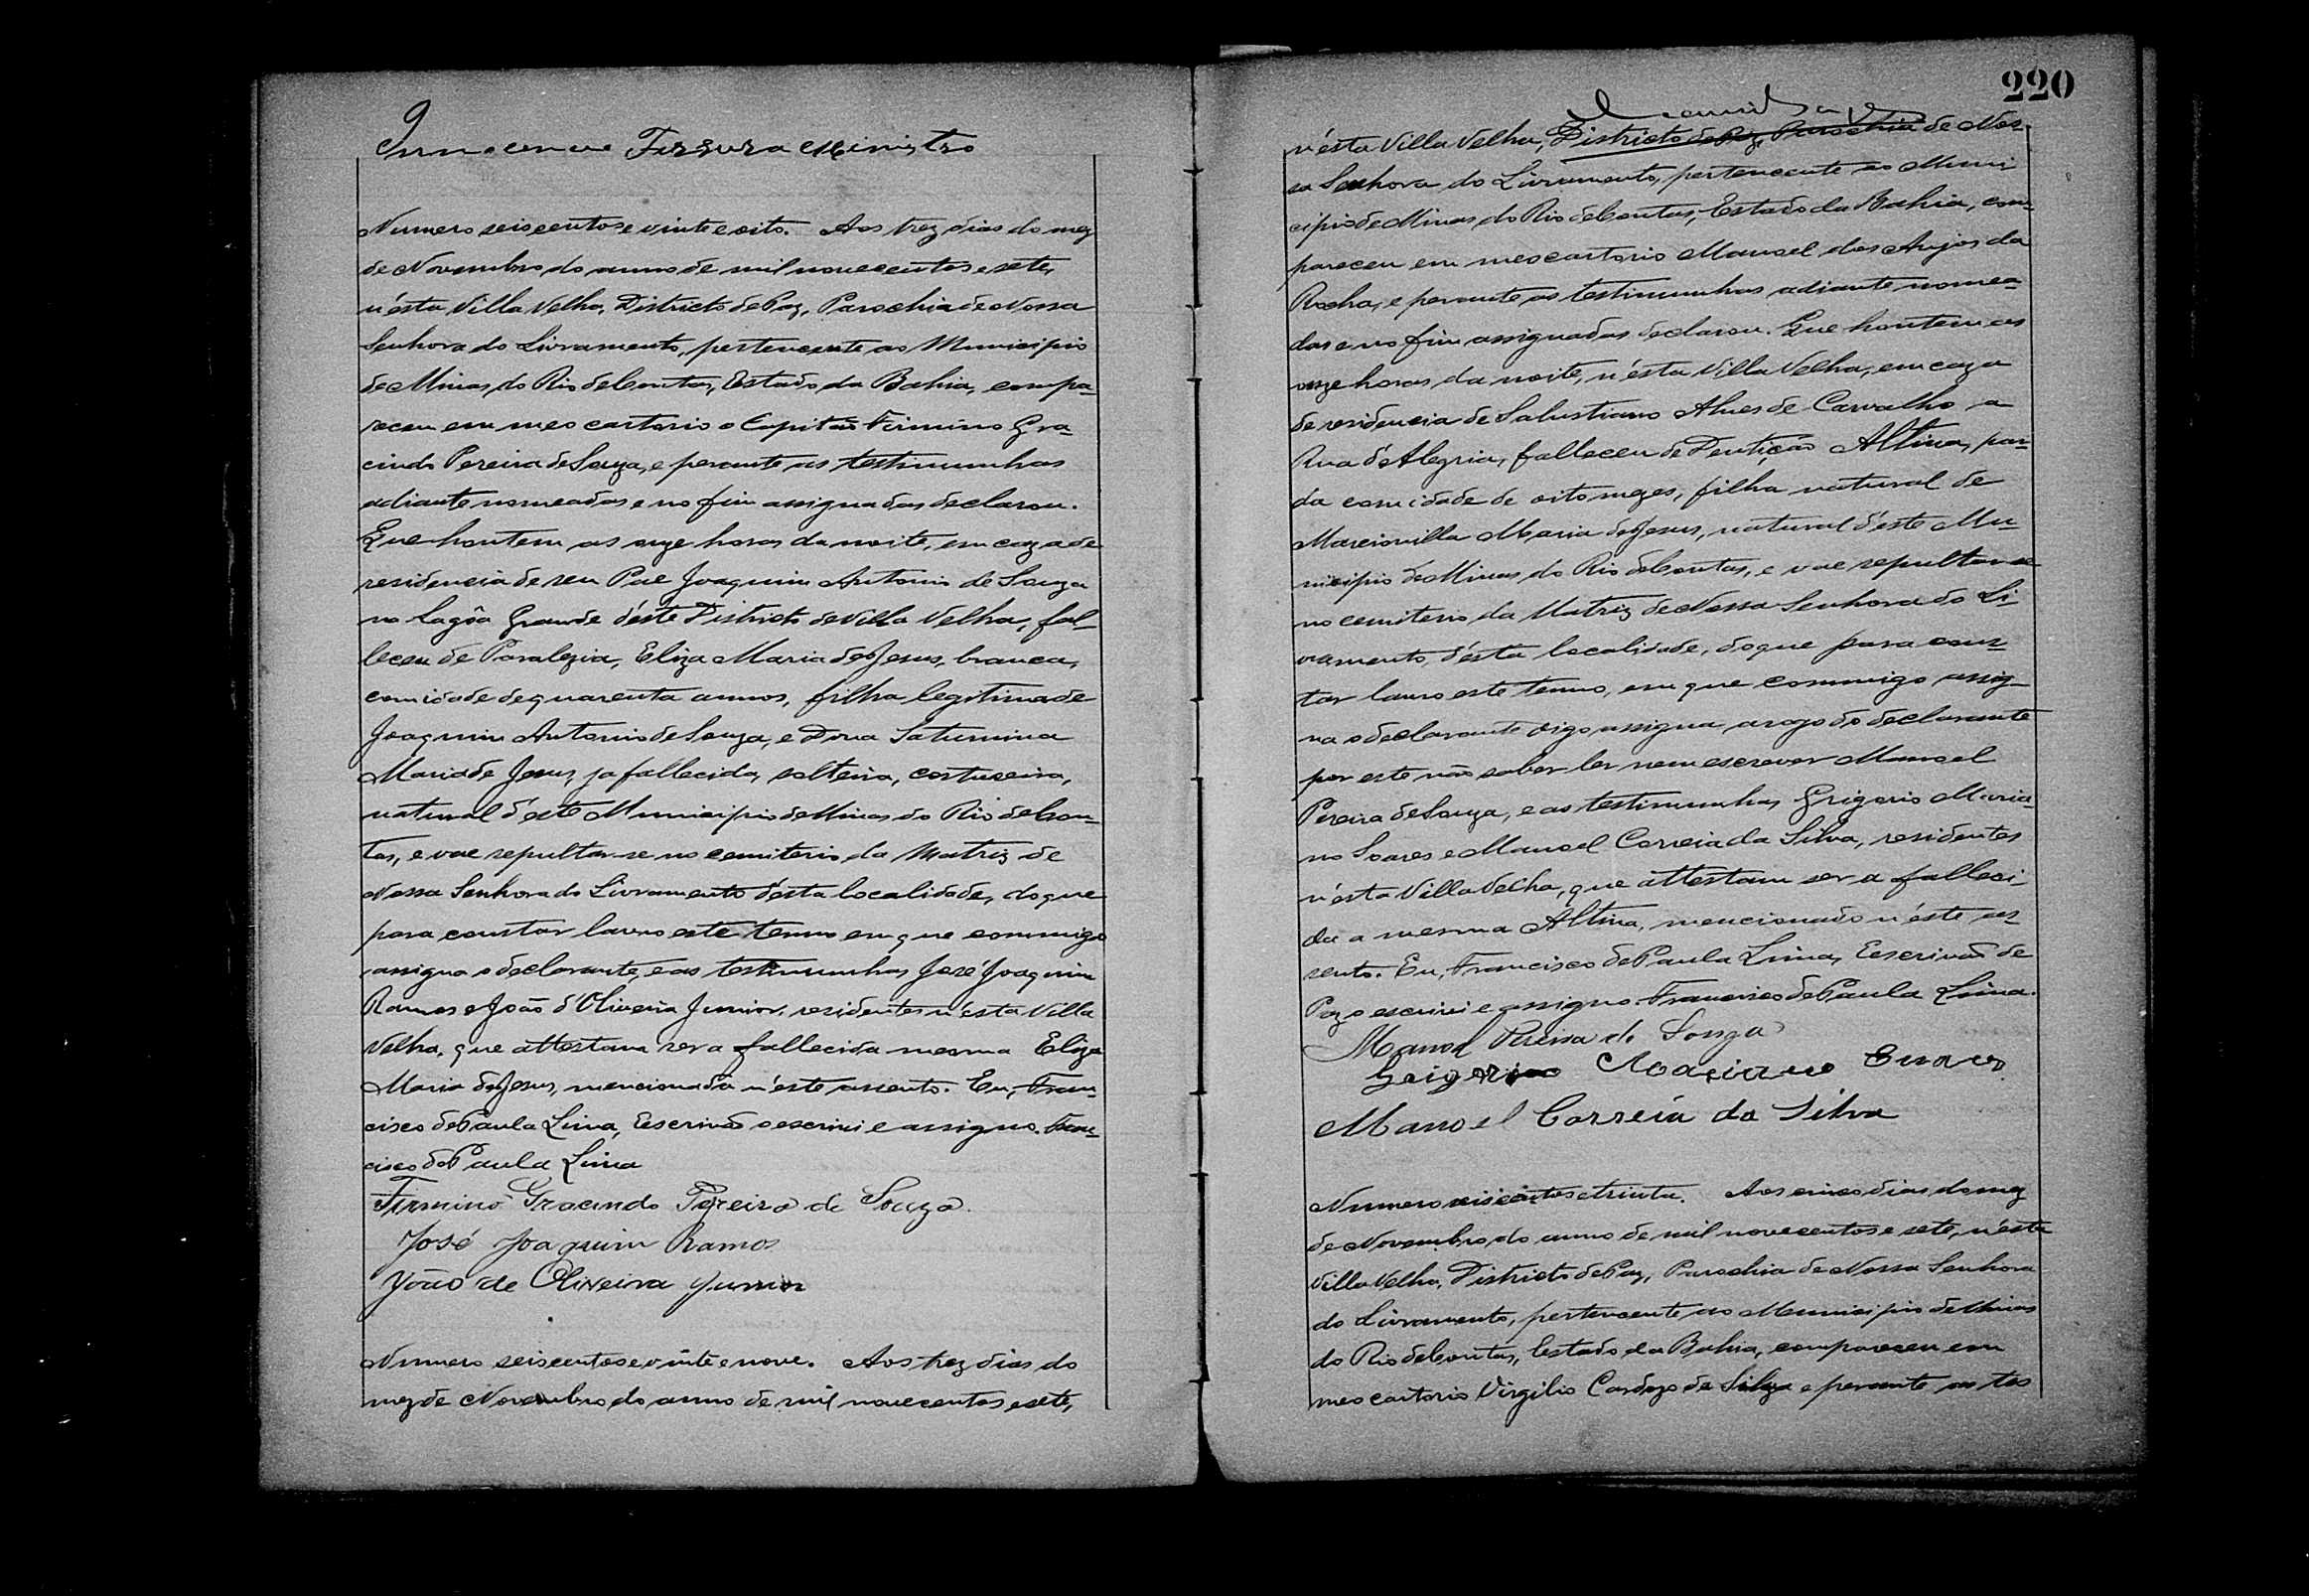 Ferrera Ministro
Numero seiscentos e vinte e oito. Aos trez dias do mez
de Novembro do anno de mil novecentos e sete,
n'ésta Villa Velha, Districto de Paz, Parochia de Nossa
Senhora do Livramento, pertencente ao Municipio
de Minas do Rio de Contas, Estado da Bahia, compa-
receu em meo cartorio o Capitão Firmino Gra-
cindo Pereira de Souza, e perante as testimunhas
adiante nomeadas e no fim assignadas declarou.
Que hontem as onze horas da noite, em caza de
residencia de seu Pae Joaquim Antonio de Souza
na Lagôa Grande d'éste Districto de Villa Velha, fal-
leceu de Paralezia, Eliza Maria de Jesus, branca,
com idade de quarenta annos, filha legitima de
Joaquim Antonio de Souza, e Dona Saturnina
Maria de Jesus, ja fallecida, solteira, costureira,
natural d'éste Municipio de Minas do Rio de Con-
tas, e vae sepultar-se no cemiterio da Matriz de
Nossa Senhora do Livramento d'ésta localidade, do que
para constar lavro este termo em que commigo
assigna o declarante, e as testimunhas José Joaquim
Ramos e João d'Oliveira Junior, residentes n'ésta Villa
Velha, que attestam ser a fallecida mesma Eliza
Maria de Jesus, mencionada n'éste assento. Eu, Fran-
cisco de Paula Lima, Escrivão o escrivi e assigno. Fran-
cisco de Paula Lima
Firmino Gracindo Pereira de Souza.
José Joaquim Ramos
João de Oliveira Junior
Numero seiscentos e vinte e nove. Aos trez dias do
mez de Novembro do anno de mil novecentos e sete,
220
n'ésta Villa Velha, Districto de Paz, Parochia de Nos-
sa Senhora do Livramento, pertencente ao Muni-
cipio de Minas do Rio de Contas, Estado da Bahia, com-
pareceu em meo cartorio Manoel dos Anjos da
Rocha, e perante as testimunhas adiante nomea-
das e no fim assignadas declarou. Que hontem as
onze horas da noite, n'ésta Villa Velha, em caza
de residencia de Salustiano Alves de Carvalho a
Rua d'Alegria, falleceu de Dentição Altina, par-
da com idade de oito mezes, filha natural de
Marcionilla Maria de Jesus, natural d'éste Mu-
nicipio de Minas do Rio de Contas, e vae sepultar-se
no cemiterio da Matriz de Nossa Senhora do Li-
vramento, d'ésta localidade, do que para cons-
tar lavro este termo, em que commigo assig-
na o declarante digo assigna a rogo do declarante
por este não saber ler nem escrever Manoel
Pereira de Souza, e as testimunhas Grigorio Maria-
no Soares e Manoel Correia da Silva, residentes
n'ésta Villa Velha, que attestam ser a falleci-
da a mesma Altina, mencionado n'éste as-
sento. Eu, Francisco de Paula Lima, Escrivão de
Paz o escrivi e assigno. Francisco de Paula Lima.
Manoel Pereira de Souza
Grigorio Mariano Soares
Manoel Correia da Silva
Numero seiscentos e trinta. Aos cinco dias do mez
de Novembro do anno de mil novecentos e sete, n'ésta
Villa Velha, Districto de Paz, Parochia de Nossa Senhora
do Livramento, pertencente ao Municipio de Minas
do Rio de Contas, Estado da Bahia, compareceu em
meo cartorio Virgilio Cardozo da Silva e perante as tes